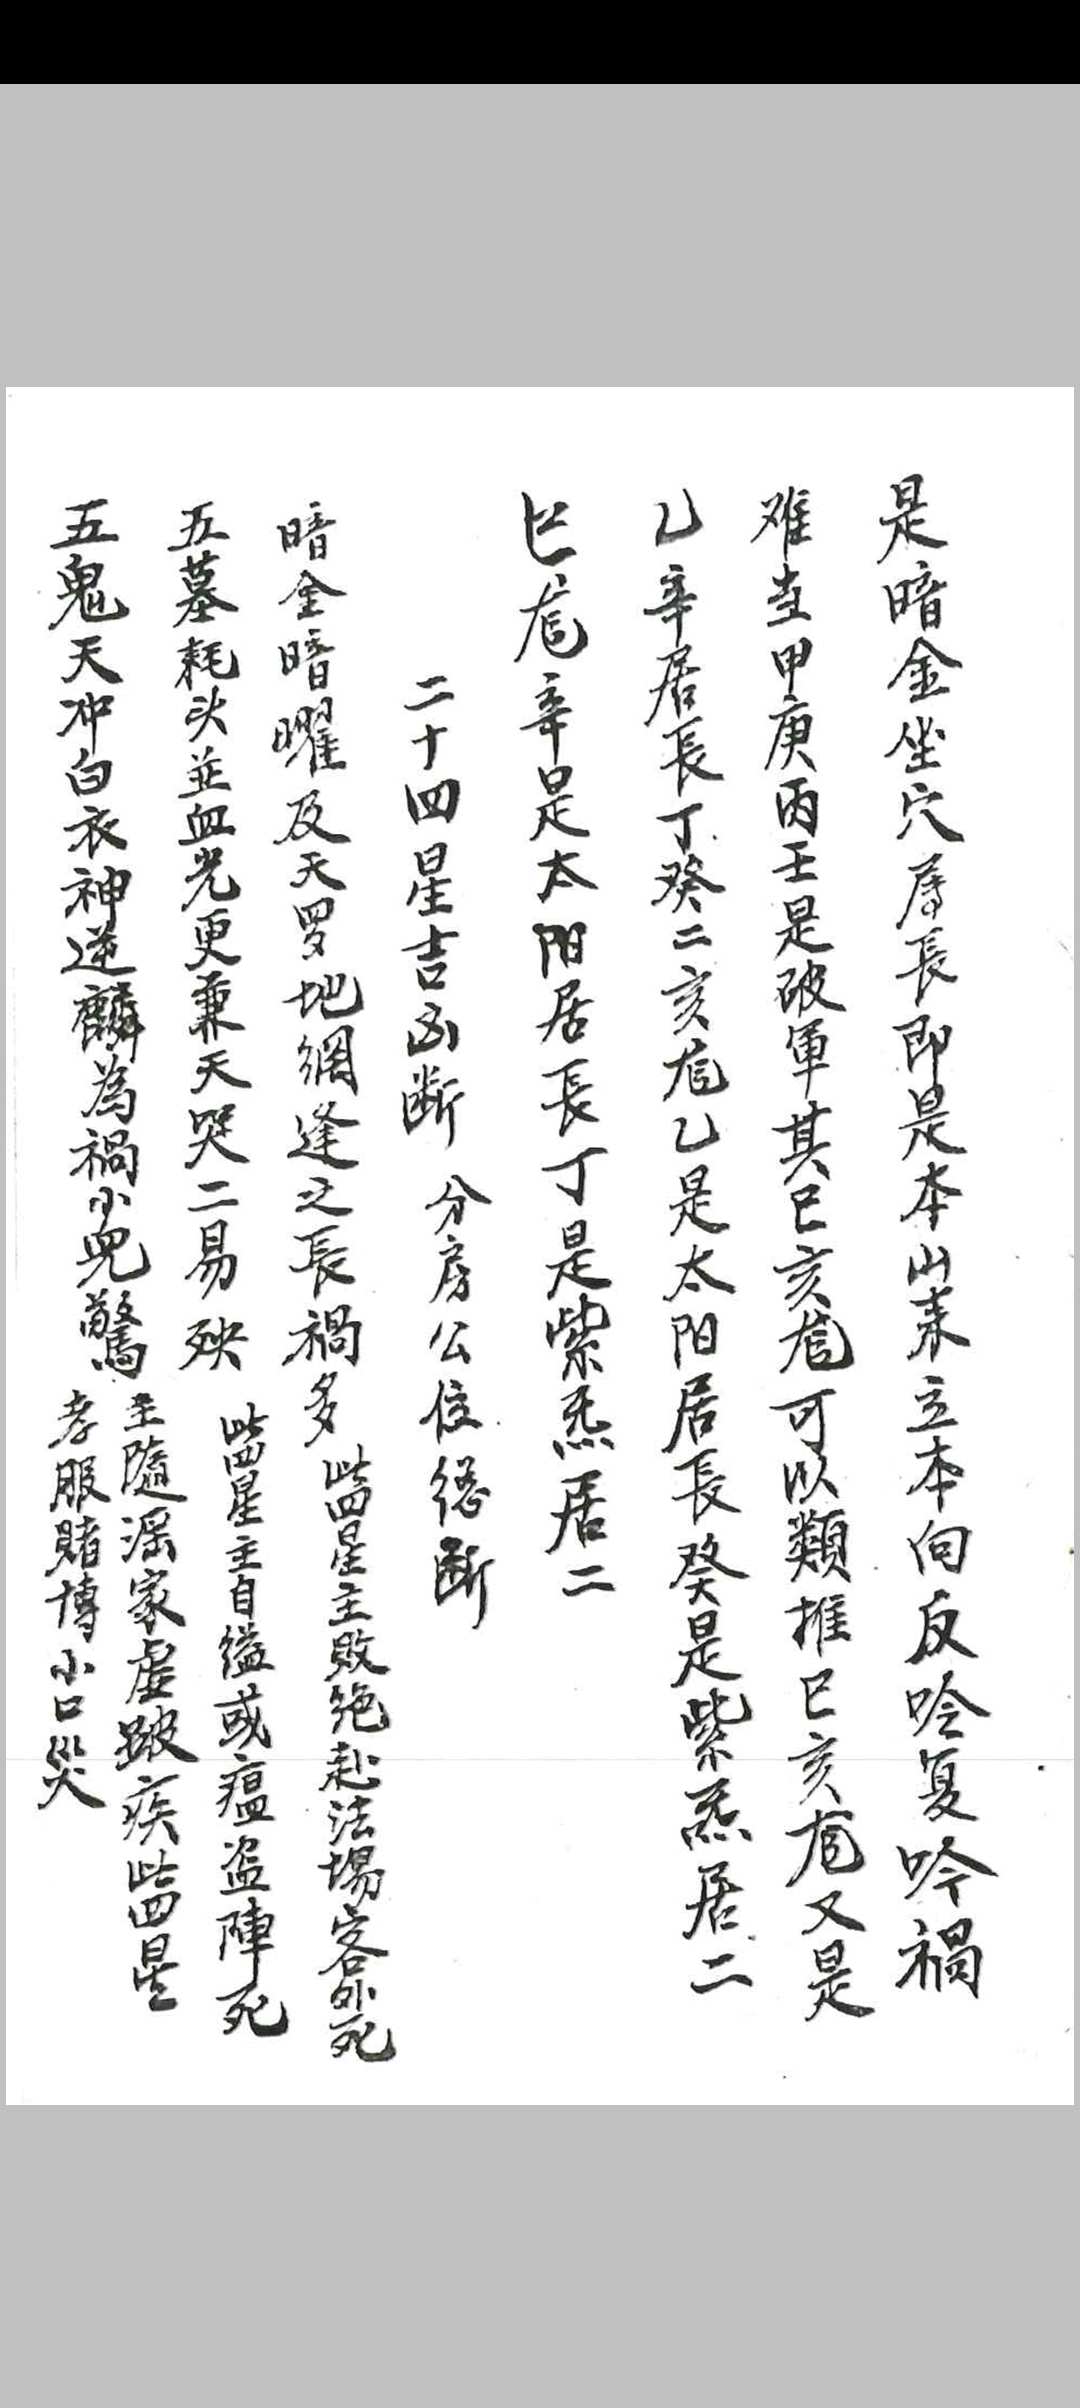 是暗金坐穴属長即是本山来立本向反吟复吟禍
难当甲庚丙壬是破軍其巳亥尨可以類推巳亥尨又是
乙辛居長丁癸二亥尨乙是太阳居長癸是紫炁居二
巳尨辛是太阳居長丁是紫炁居二
二十四星吉凶断 分房公位總断
暗金暗曜及天罗地網逢之長禍多 此四星主敗绝赴法場客外死
五墓耗头並血光更兼天哭二易殃 此四星主自缢或瘟盗陣死
五鬼天冲白衣神逆麟為禍小兒驚 主隨淫家虚跛疾此四星
孝服賭博小口災